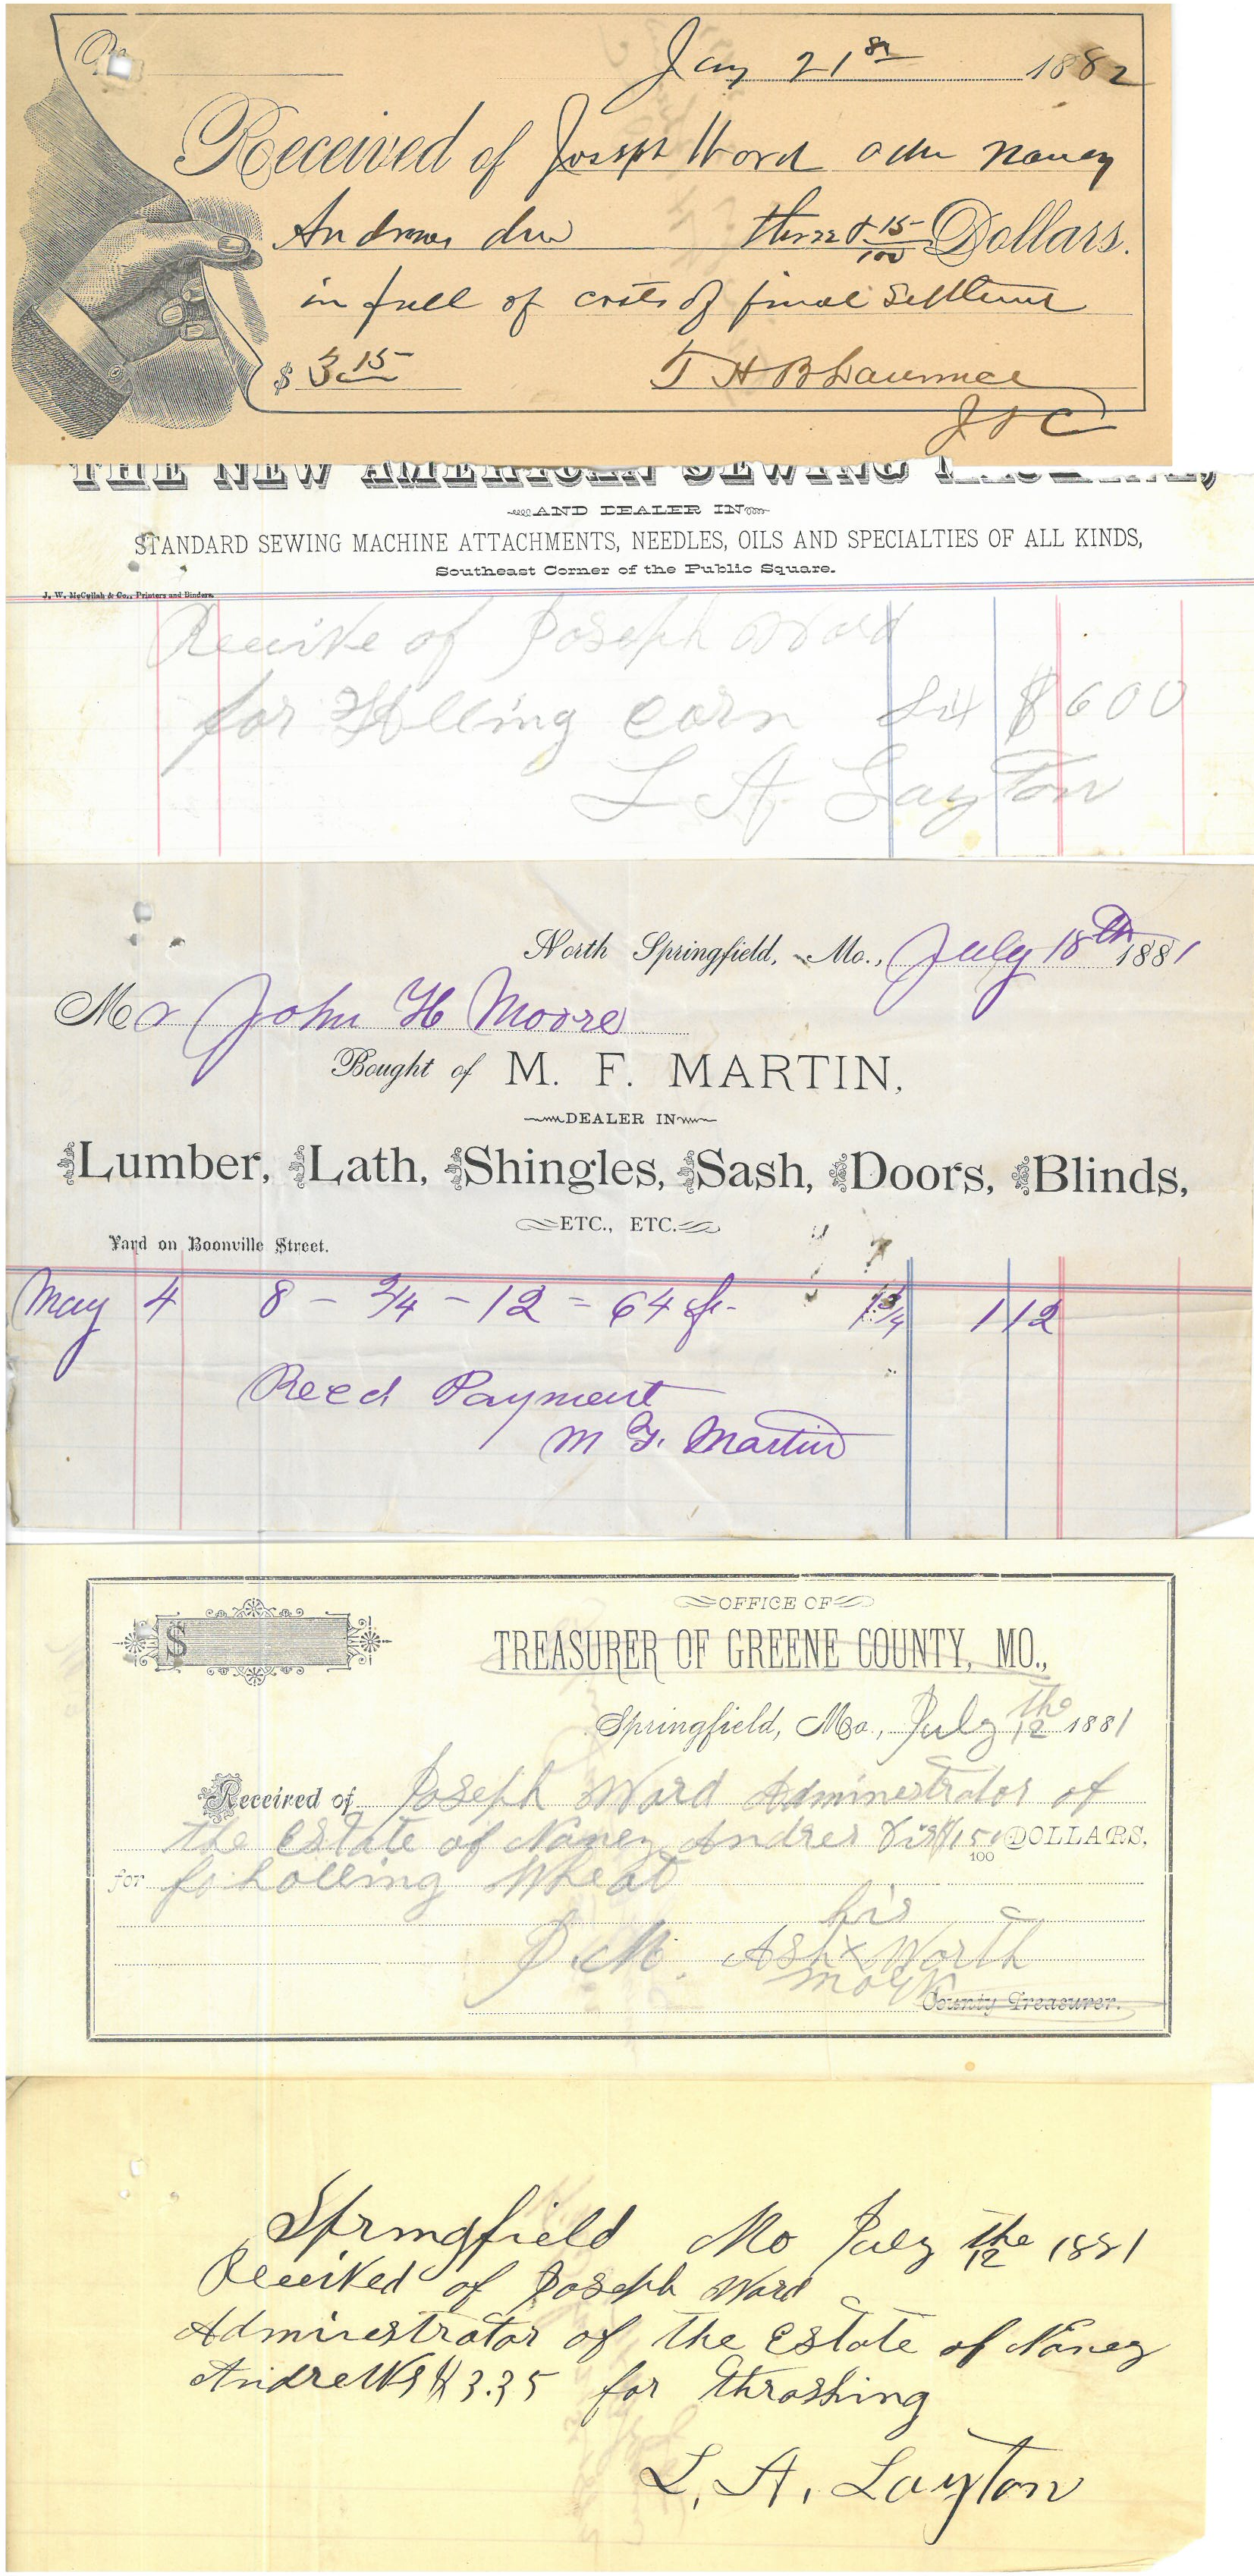 No
Jan 21st 1882
Received of Joseph Word adm Nancy
Andrews dec three & 15/100 Dollars.
in full of costs of final settlement
$ 3 15 T H B Lawrence
J P C
THE NEW AMERICAN SEWING MACHINE,
AND DEALER IN
STANDARD SEWING MACHINE ATTACHMENTS, NEEDLES, OILS AND SPECIALTIES OF ALL KINDS,
Southeast Corner of the Public Square.
J. W. McCullah & Co., Printers and Binders.
Receive of Joseph Ward
for Holling corn $600
L A Layton
North Springfield, Mo., July 18th 1881
Mr John H Moore
Bought of M. F. MARTIN,
DEALER IN
Lumber, Lath, Shingles, Sash, Doors, Blinds,
ETC., ETC.
Yard on Boonville Street.
May 4 8 - 2/4 - 12 = 64 ft - 1 3/4 1 12
Recd Payment
M F. Martin
OFFICE OF
$ TREASURER OF GREENE COUNTY, MO.,
Springfield, Mo., July the 12 1881
Received of Joseph Ward Adminestrator of
the Estate of Nancy Andres 100 DOLLARS,
for holling Wheat
his
J. M. Ash x Worth
mark
County Treasurer.
Springfield Mo July the 12 1881
Received of Joseph Ward
Adminestrator of the Estate of Nancy
Andrews $3.35 for thrashing
L. A. Layton